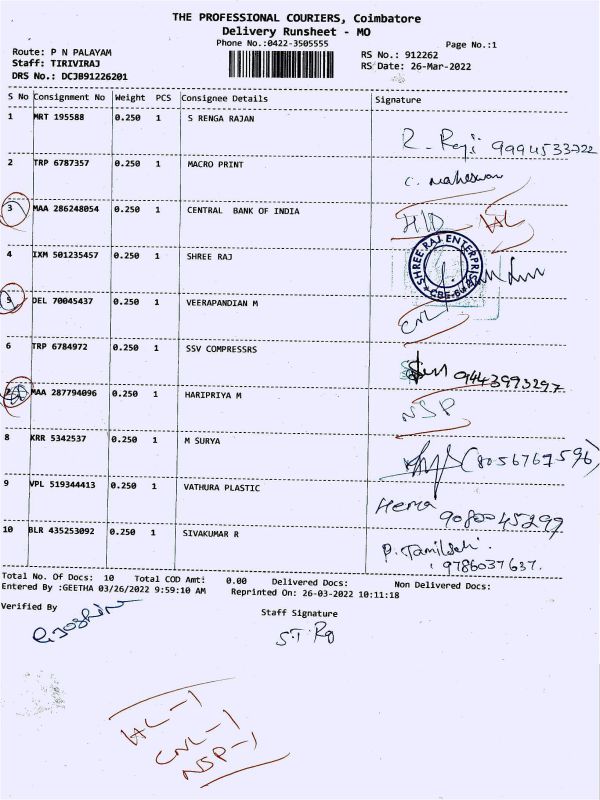 THE PROFESSIONAL COURIERS, Coimbatore
Delivery Runsheet - MO
Phone No.:0422-3505555
Page No.:1
Route: P N PALAYAM
Staff: TIRIVIRAJ
DRS No.: DCJB91226201
RS No.: 912262
RS Date: 26-Mar-2022
S No Consignment No Weight PCS Consignee Details Signature
1 MRT 195588 0.250 1 S RENGA RAJAN
R. Raji 9994533722
2 TRP 6787357 0.250 1 MACRO PRINT
C. Maheswari
3 MAA 286248054 0.250 1 CENTRAL BANK OF INDIA
H/D HL
4 IXM 501235457 0.250 1 SHREE RAJ
SHREE RAJ ENTERPRISES
5 DEL 70045437 0.250 1 VEERAPANDIAN M
CNL
6 TRP 6784972 0.250 1 SSV COMPRESSRS
9443993297
MAA 287794096 0.250 1 HARIPRIYA M
NSP
8 KRR 5342537 0.250 1 M SURYA
(8056767596)
9 VPL 519344413 0.250 1 VATHURA PLASTIC
Hema
9080045297
10 BLR 435253092 0.250 1 SIVAKUMAR R
P. Tamilselvi
9786037637.
Total No. Of Docs: 10 Total COD Amt: 0.00 Delivered Docs: Non Delivered Docs:
Entered By :GEETHA 03/26/2022 9:59:10 AM Reprinted On: 26-03-2022 10:11:18
Verified By
Staff Signature
S.T. Raj
HL-1
CNL-1
NSP-1